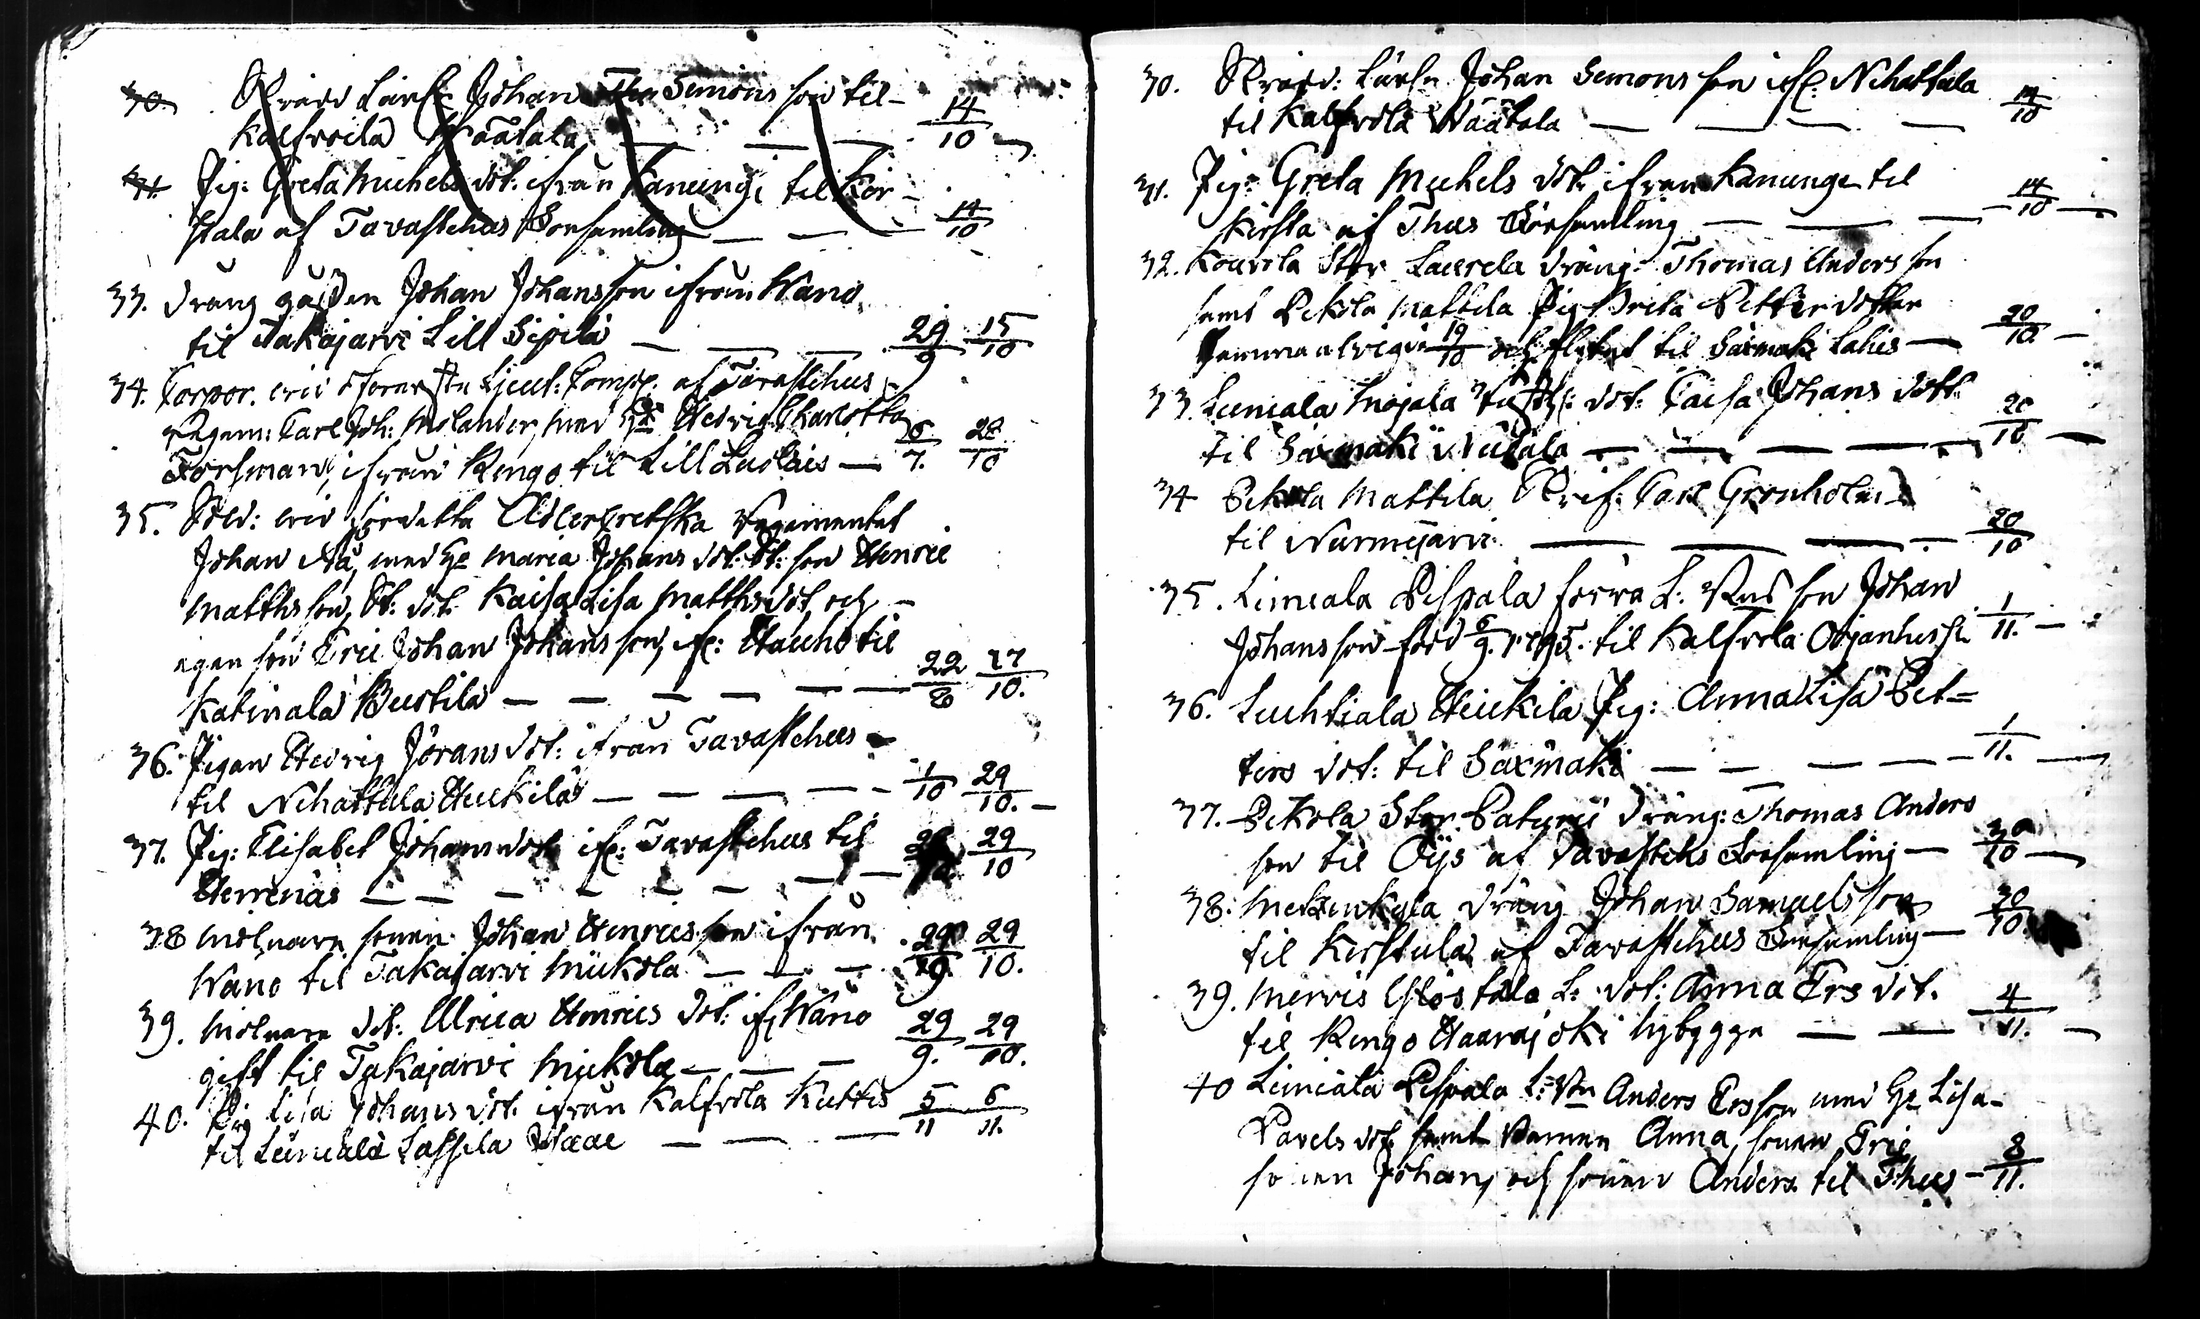 30. Skrädd: Lärl: Johan Simons son til
Kalfvola Wäätälä — — — 14/10
31. Pig: Greta Michels dot: ifrån Kanungi til Kir-
stula af Tavastehus Församling — — 14/10
33. Dräng gåssen Johan Johansson ifrån Wånå
til Takajärvi Lill Sipilä — — — 29/9 15/10
34. Corpor. Ljeut: Comp: af Tavastehus
Regem: Carl Joh: Molander, med H: Hedvig Charlotta
Forsman, ifrån Rengo til Lill Luolais — 6/7. 28/10
35. Sold: vid Adlercretska Regementet
Johan Rå, med H: Maria Johans dot: St: son Henric
Matthsson, St: dot: Kaisa Lisa Matths dot: och
egen son Eric Johan Johansson, ifr: Hauho til
Katinala Bustila — — — — — 22/8 27/10.
36. Pigan Hedvig Jörans dot: ifrån Tavastehus
til Nihattula Heikilä — — — — 1/10 29/10. —
37. Pig: Elisabet Johans dot: ifr: Tavastehus til
Herrenäs — — — — — — 29/10
38 Molnare sonen Johan Henrics son ifrån
Wånå til Takajarvi Mickola — — — 29/9. 29/10.
39. Molnare dot: Ulrica Henrics dot: ifr Wånå
gift til Takajarvi Mickola — — — 29/9. 29/10.
40. Pig Lisa Johans dot: ifrån Kalfvola Kuttis 5/11 6/11.
til Leinialä Lassila — — —
30. Skrädd: Lärl: Johan Simons son ifr: Nihattula
til Kalfvola Wäätälä — — — — 14/10
31. Pig: Greta Michels dot: ifrån Kanunge til
Kirsta af Thus Församling — — — 14/10 —
32. Stor Laurela dräng: Thomas Anders son
samt Pekola Mattila Pig Greta Petter dotter
19/10 och flytat til Säxmäki Lahis — 20/10. —
33 Leiniala Caisa Johans dott:
til Säxmäki — — — — — 20/10 —
34 Pekola Mattila Carl Grönholm
til Nurmijärvi — — — — 20/10
35. Leiniala Pispala förra L: son Johan
Johansson född 6/9. 1795. til Kalfvola 1/11. —
36. Luhtiala Heikilä Pig: Anna Lisa Pet=
ters dot: til Säxmäki — — — — — 1/11. —
37. Pekola Stor Paturi dräng: Thomas Anders
son til Öijs af Tavastehs Församling — 30/10 —
38. Metsänkylä dräng Johan Samuels son
til Kirstula af Tavastehus Församling — 30/10.
39. Mervis L: dot: Anna Ers dot:
til Rengo Haarajoki nybygge — — 4/11. —
40 Leiniala Pispala Anders Ersson med H: Lisa
Pavels dot: samt Barnen Anna, sonen Eric,
sonen Johan, och sonen Anders til Thus — 8/11.